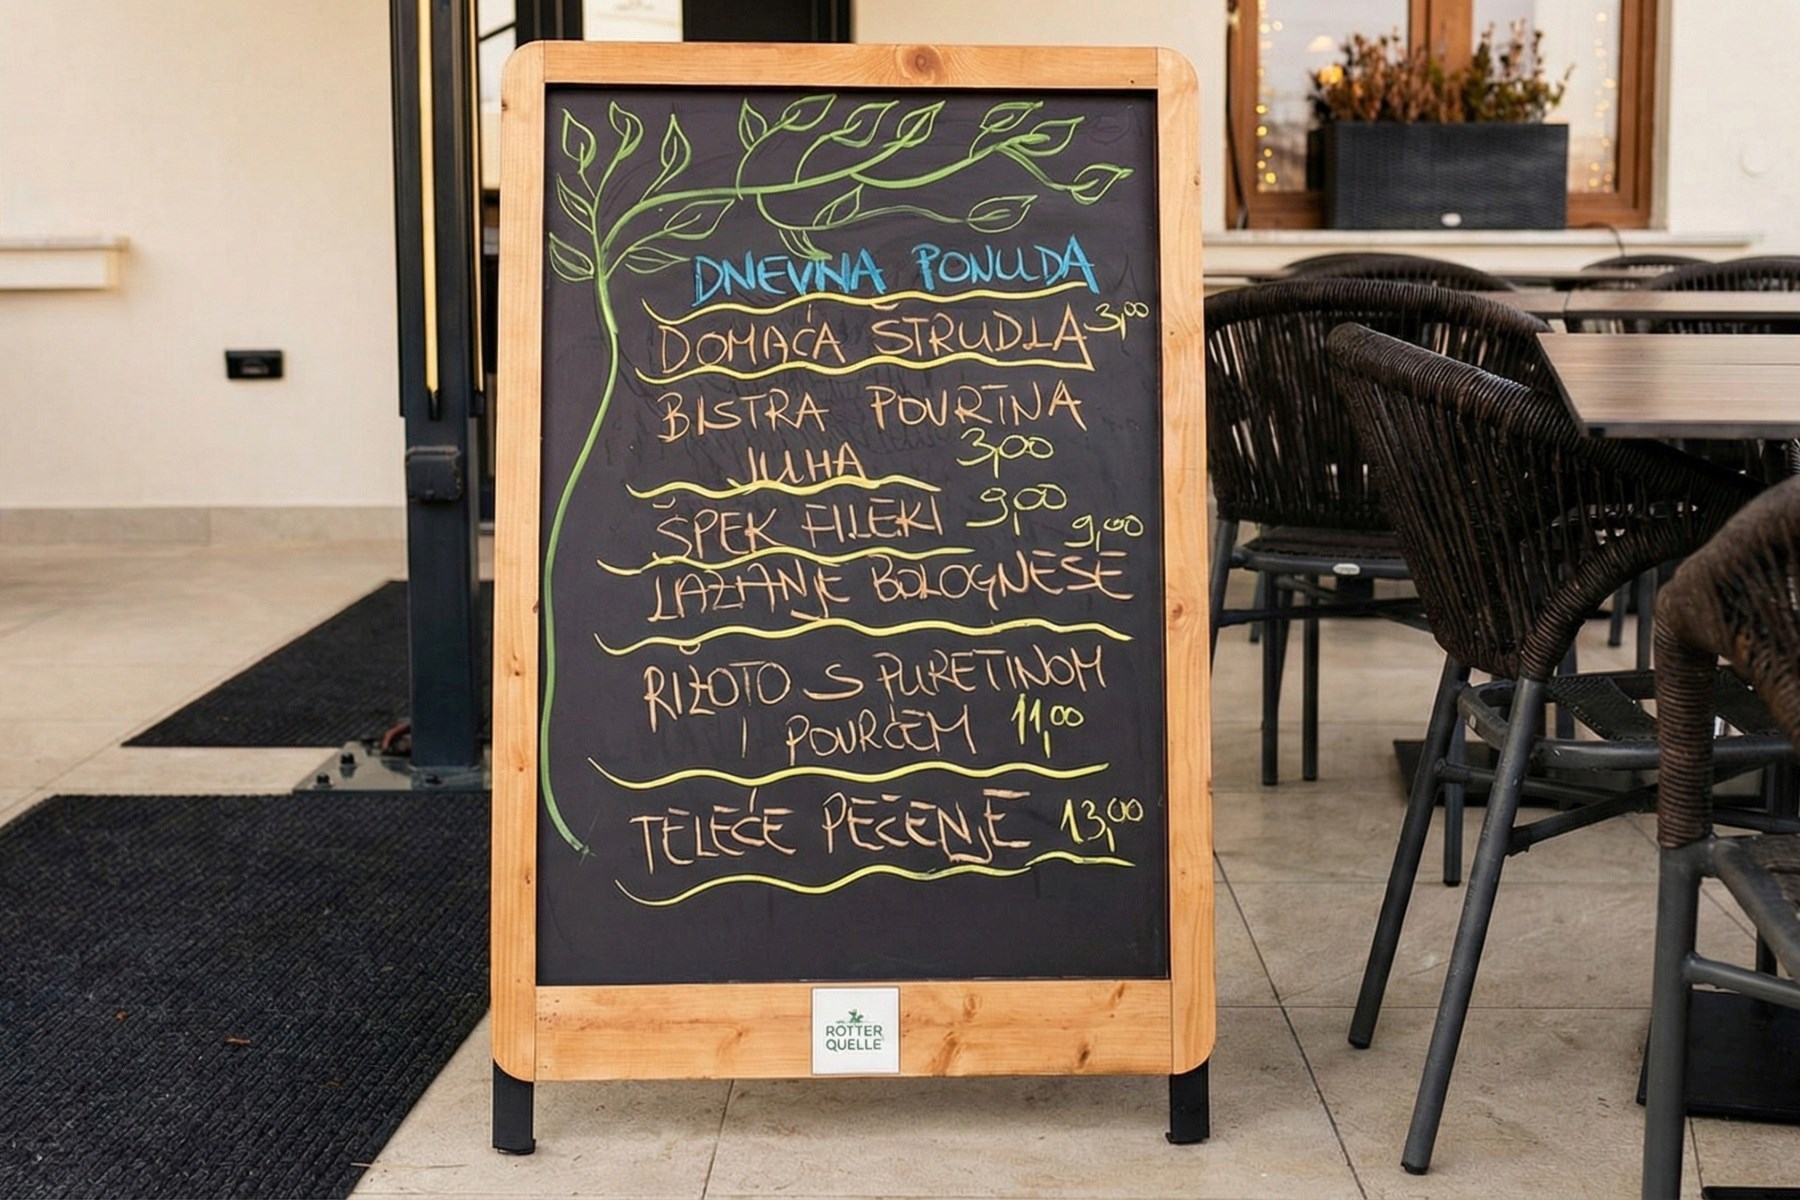 DNEVNA PONUDA
DOMAĆA ŠTRUDLA 3,00
BISTRA POVRTNA
JUHA 3,00
ŠPEK FILEKI 9,00
9,00
LAZANJE BOLOGNESE
RIŽOTO S PURETINOM
I POVRĆEM 11,00
TELEĆE PEČENJE 13,00
ROTTER
QUELLE